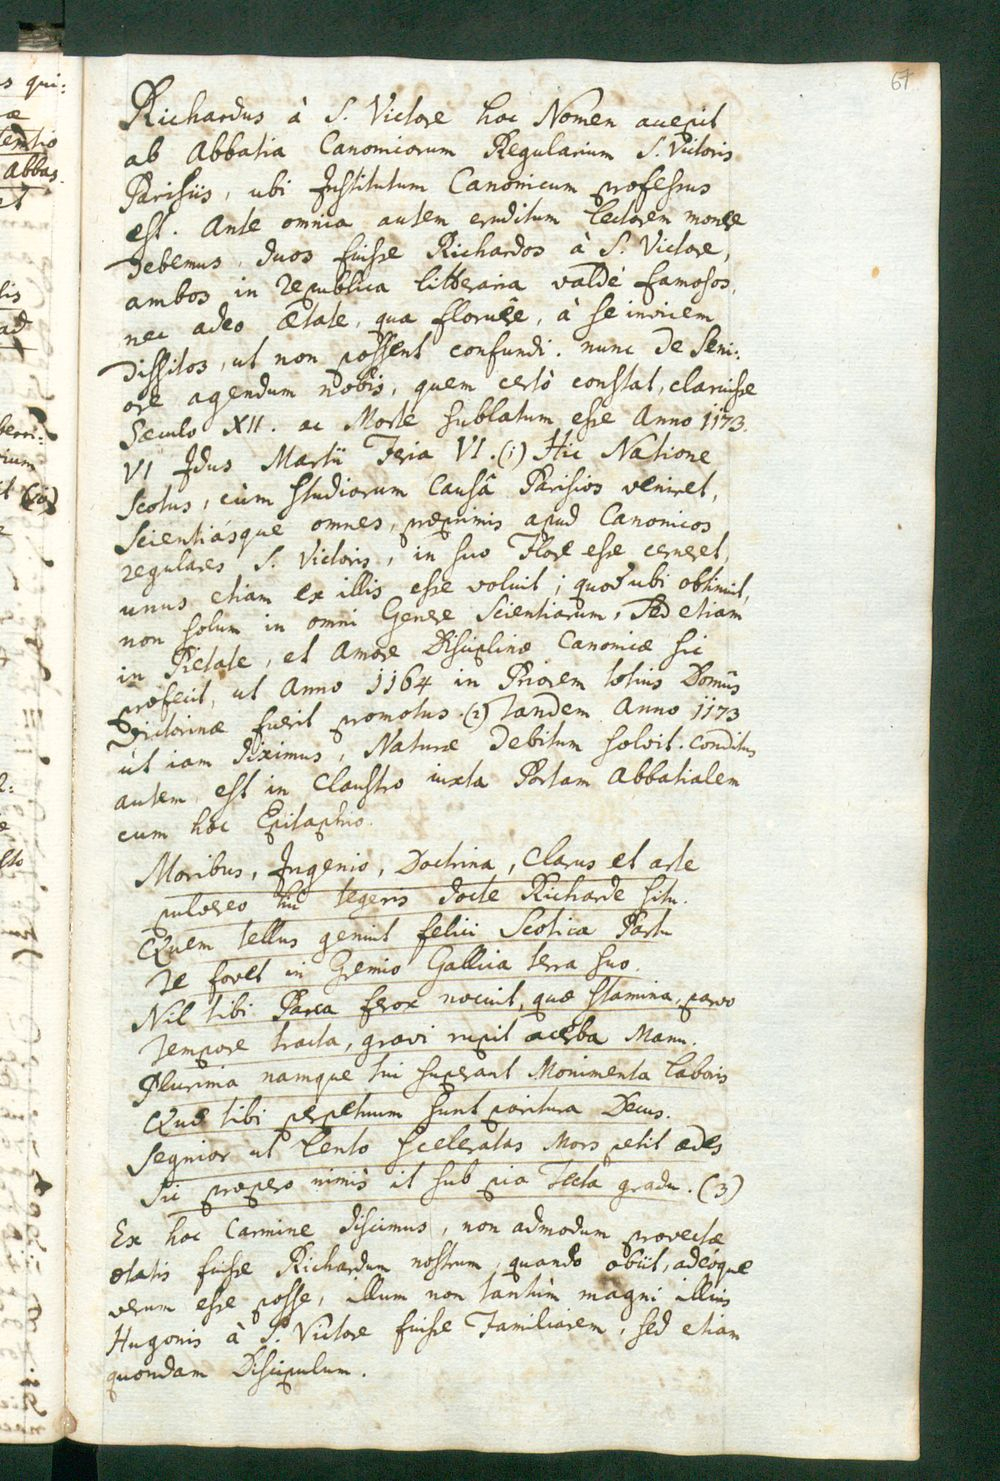 67
Richardus à S. Victore hoc Nomen accepit
ab Abbatia Canonicorum Regularium S. Victoris
Parisiis, ubi Institutum Canonicum professus
est. Ante omnia autem eruditum Lectorem monere
debemus, duos fuisse Richardos à S. Victore,
ambos in republica litteraria valdè famosos,
nec adeo ætate, qua floruêre, à se invicem
dissitos, ut non possent confundi. nunc de Seni-
ore agendum nobis, quem certò constat, claruisse
Sæculo XII. ac Morte sublatum esse Anno 1173.
VI Idus Martii Feria VI. (1) Hic Natione
Scotus, cùm studiorum causâ Parisios veniret,
Scientiásque omnes, præprimis apud Canonicos
regulares S. Victoris, in suo Flore esse cerneret,
unus etiam ex illis esse voluit; quod ubi obtinuit,
non solum in omni Genere Scientiarum, sed etiam
in Pietate, et Amore Disciplinæ Canonicæ sic
profecit, ut Anno 1164 in Priorem totius Domûs
Victorinæ fuerit promotus. (2) tandem Anno 1173
ut iam diximus, Naturæ debitum solvit. Conditus
autem est in Claustro iuxta Portam Abbatialem
cum hoc Epitaphio.
Moribus, Ingenio, Doctrina, Clarus et arte
pulvereo hic tegeris docte Richarde situ.
Quem tellus genuit felici Scotica Partu
Te fovet in Gremio Gallica terra suo.
Nil tibi Parca ferox nocuit, quæ stamina, parvo
Tempore tracta, gravi rupit acerba Manu.
Plurima namque tui superant Monimenta laboris
Quæ tibi perpetuum sunt paritura Decus.
Segnior ut lento sceleratas Mors petit ædes
Sic propero nimis it sub pia Tecta gradu. (3)
Ex hoc Carmine discimus, non admodum provectæ
ætatis fuisse Richardum nostrum, quando obiit, adeóque
verum esse posse, illum non tantùm magni illius
Hugonis à S. Victore fuisse Familiarem, sed etiam
quondam Discipulum.